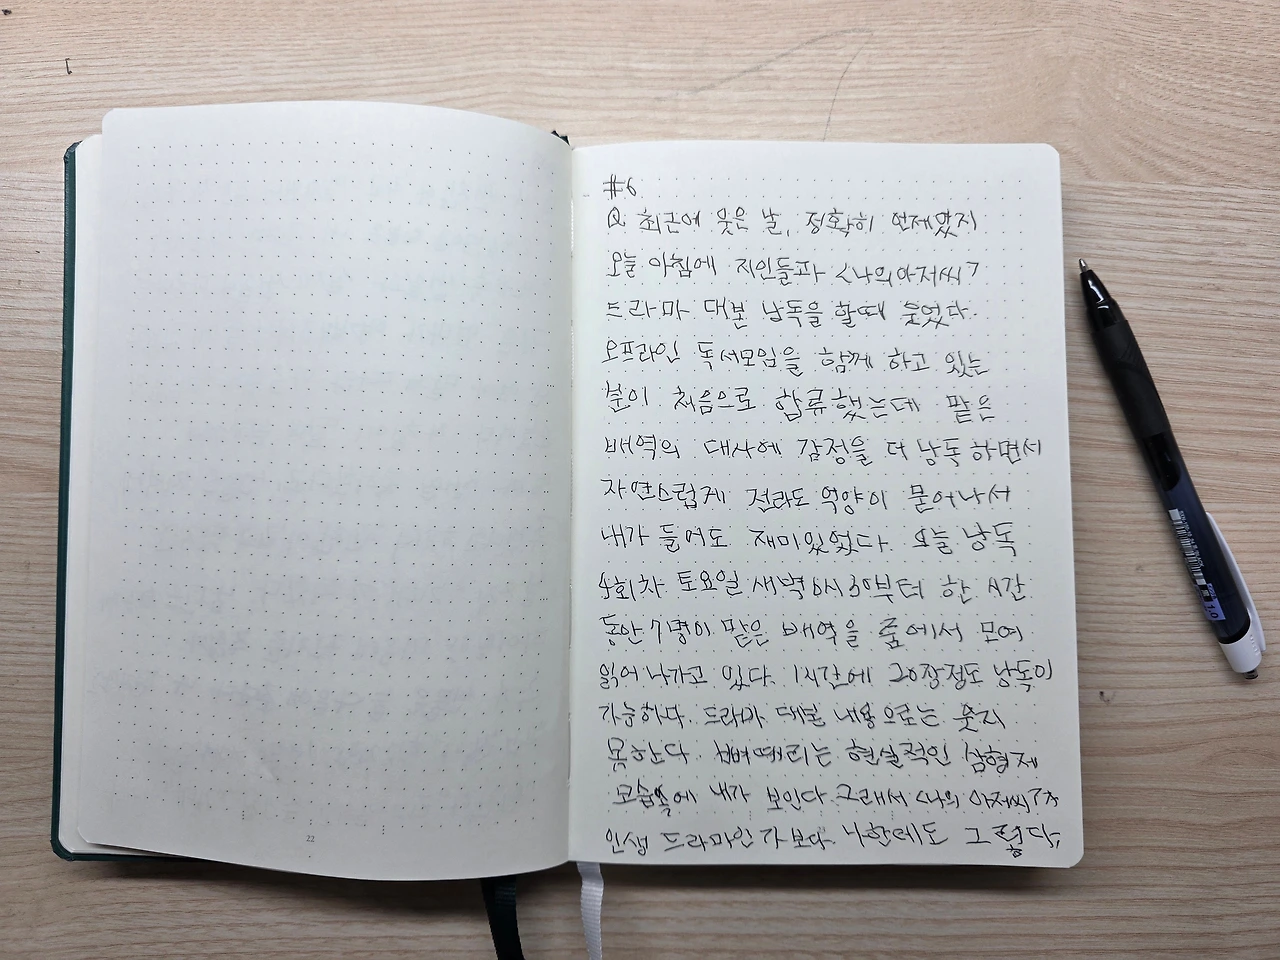 #6
Q 최근에 웃은 날, 정확히 언제였지
오늘 아침에 지인들과 <나의아저씨>
드라마 대본 낭독을 할때 웃었다.
오프라인 독서모임을 함께 하고 있는
분이 처음으로 합류했는데 맡은
배역의 대사에 감정을 더 낭독하면서
자연스럽게 전라도 억양이 묻어나서
내가 들어도 재미있었다. 오늘 낭독
4회차 토요일 새벽 6시 30부터 한 시간
동안 7명이 맡은 배역을 줌에서 모여
읽어 나가고 있다. 1시간에 20장정도 낭독이
가능하다. 드라마 대본 내용으로는 웃지
못한다. 뼈때리는 현실적인 삼형제
모습속에 내가 보인다. 그래서 <나의 아저씨>가
인생 드라마인가 보다. 나한테도 그렇다.
22
1.0